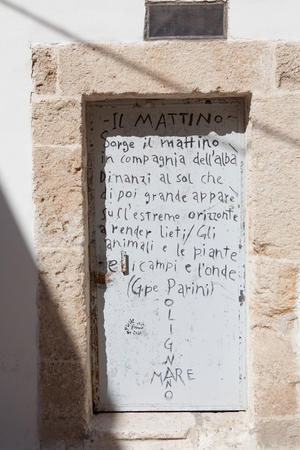 -IL MATTINO-
Sorge il mattino
in compagnia dell'alba
Dinanzi al sol che
di poi grande appare
Sull'estremo orizzonte
a render lieti/Gli
animali e le piante
e i campi e l'onde
(G.pe Parini)
POLIGNANO
MARE